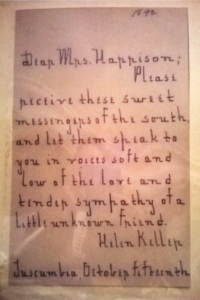 1892
Dear Mrs. Harrison;
Please
receive these sweet
messengers of the south
and let them speak to
you in voices soft and
low of the love and
tender sympathy of a
little unknown friend.
Helen Keller
Tuscumbia October fifteenth